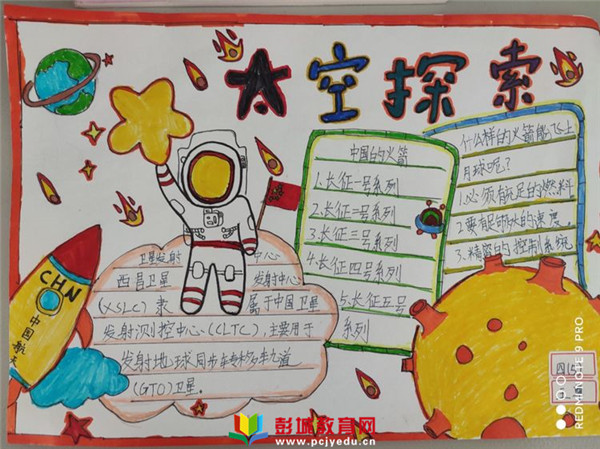 太空探索
中国的火箭
1.长征一号系列
2.长征二号系列
3.长征三号系列
4.长征四号系列
5.长征五号
系列
什么样的火箭能飞上
月球呢?
1.必须有充足的燃料
2.要有足够大的速度。
3.精密的控制系统
卫星发射 中心
西昌卫星 发射中心
(XSLC)隶 属于中国卫星
发射测控中心(CLTC),主要用于
发射地球同步转移轨道
(GTO)卫星。
CHN
中国航天
四(5)
REDMI NOTE 9 PRO
彭城教育网
www.pcjyedu.cn